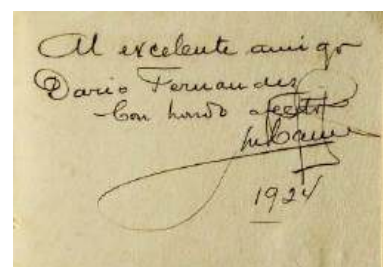 Al excelente amigo
Dario Fernandez
Con hondo afecto
1924